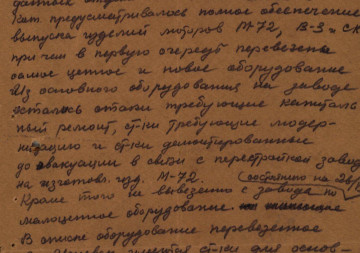 кат. предусматривалось полное обеспечение
выпуска изделий моторов М-72, В-3 и СК
при чем в первую очередь перевезено
самое ценное и новое оборудование
Из основного оборудования на заводе
остались станки требующие капиталь
ный ремонт, ст-ки требующие модер-
низацию и ст-ки демонтированные
до эвакуации в связи с перестройкой завода
на изготовл. изд. М-72.
Кроме того не вывезено с завода
малоценное оборудование
В числе оборудование перевезенное
имеются ст-ки для основ-